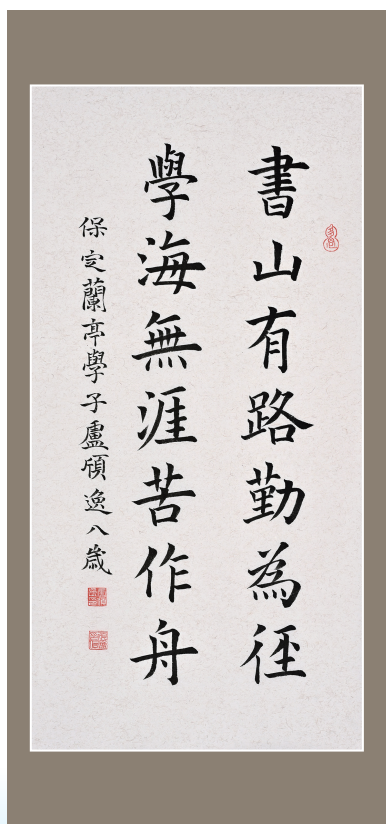 書山有路勤為徑
學海無涯苦作舟
保定蘭亭學子盧頎逸八歲